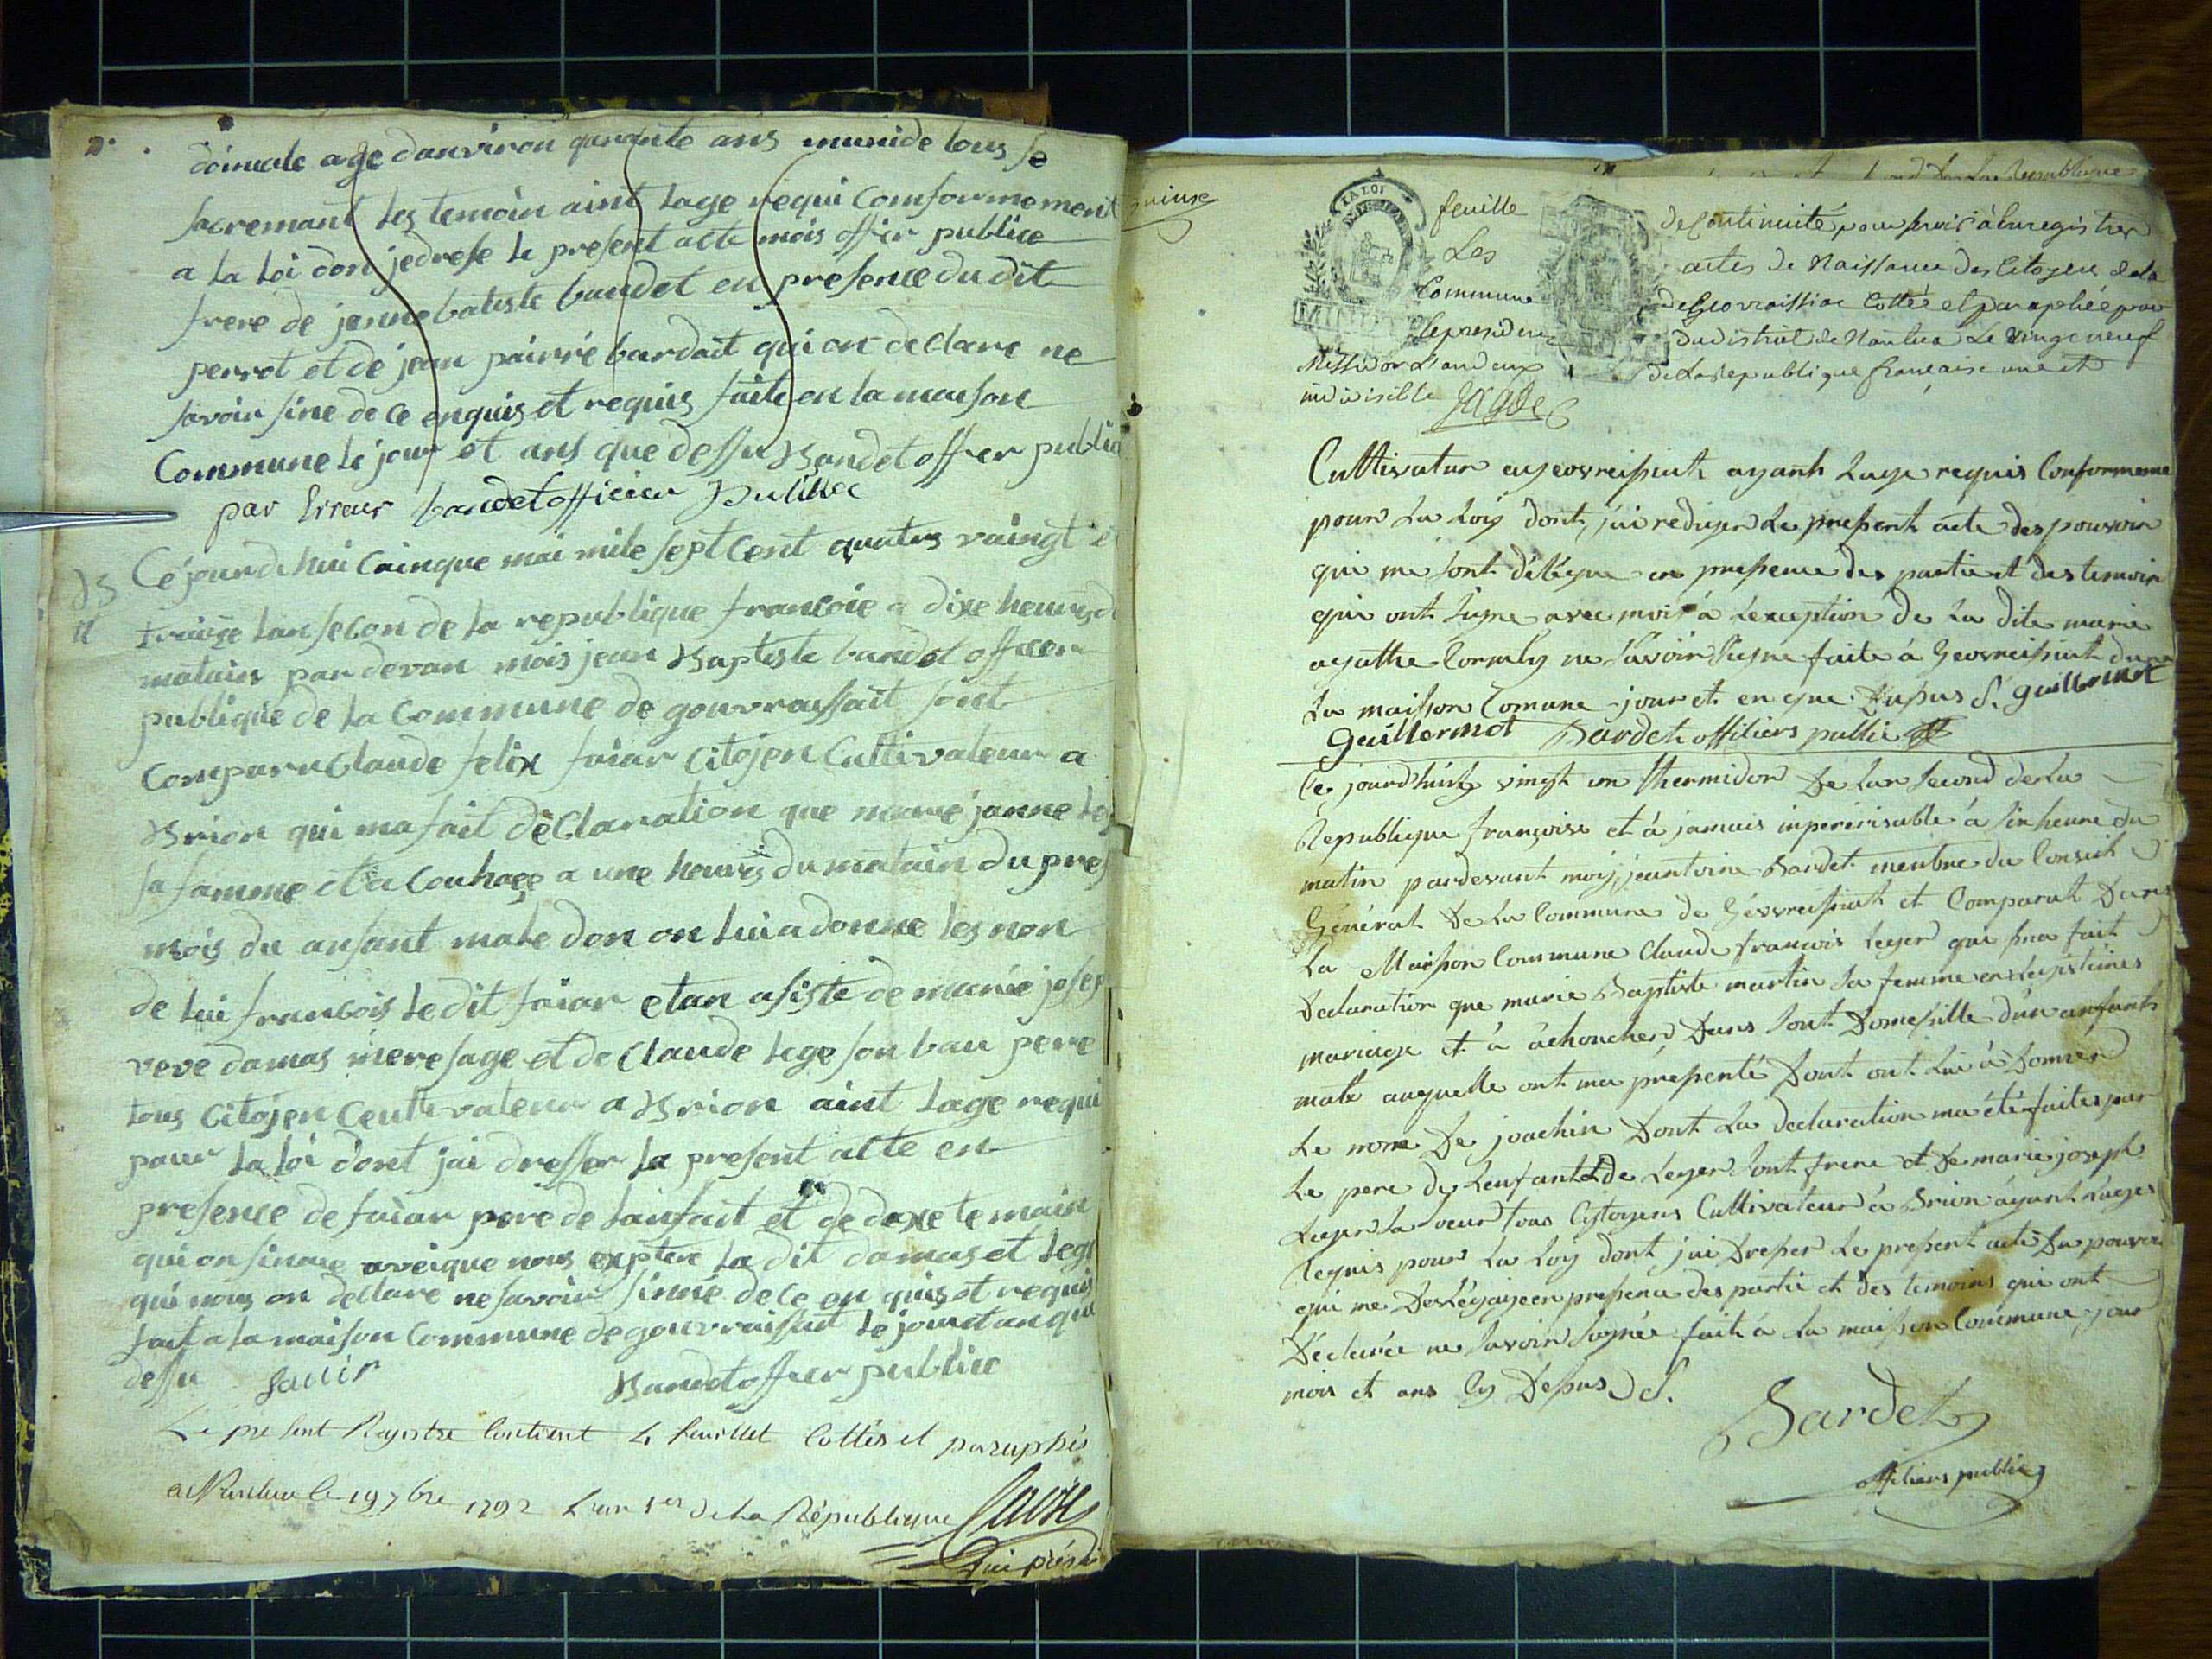 doimcile age danviron quarante ans munide tous se
sacremant les temoin aint lage requi Comformement
a la Loi don jedrese le present acte mois offier publice
frere de janne batiste baudet en presence du dit
perrot et de jean pairré bardait qui on declare ne
savoir sine de ce enquis et requis faite en la maison
Commune le jour et ans que dessu Bandet offier public
par Erreur baudet officier publique
Ce jourdehui Cainque mai mile sept Cent quatres vaingt
traize lan segon de la republique francoie a dixe heures d
matain par devan mois jean Baptiste bandet officer
publique de la Commune de gouvraissait sont
Comparu Claude felix faiar Citojen Cultivateur a
Brion qui ma fait déClaration que marie janne leg
sa famme et a Couhage a une heures du matain du pres
mois du ansant male don on lui a donne les non
de lui francois le dit faiar etan asiste de marie josep
veve damas mere sage et de Claude lege son bau pere
tous Citojen Ceultivateur a Brion aint lage requi
pour la loi dont jai dresser la present atte en
presence de faiar pere de lanfait et de daxe temain
qui on sinne aveique nous exptere la dit damas et lege
qui nous on declare ne savoir sinné de ce en quis et requis
fait a la maison Commune de gouvraissiat le jour et an que
dessu faiiir Bandet offier publice
Le present Registre Contient 4 feuillet Cottés et paraphés
a Nantua le 19 7bre 1792 L'an 1er de la République
quinze
LA LOI
feuille de Continuité pour servir à Enregistrer
Les actes de Naissance des Citoyens de la
Commune de Geovraissiac Cottée et paraphée par
le president du district de Nantua Le vingt neuf
Messidor L'an deux de la republique française une et
indivisible
Cultivatur a geovreissiat ayant Lage requis Conformeme
pour La Loiy dont j'ai rediger Le present acte des pouvoir
qui me sont délégue en presence des partie et des temoin
qui ont signe avec moi à Lexception de La dite marie
agathe Cormly ne Savoir Signe faite à Geovreissiat dans
La maison Comune jour et en que Dessus S. Guillermot
Guillermot Bardet offitiers public
Ce jourd'huits vingt un thermidor De lan Second de la
Republique françoise et à jamais imperirisable à Six heure du
matin pardevant moiy jeantoine Bardet menbre du Conseil
Général De La Commune de Géovreissiat et Comparut Dans
La Maison Commune Claude francois leger qui ma fait
Declaration que marie Baptiste martin Sa femme en legistimes
mariage et à àchoucher Dans sont Domesille d'un anfants
male auquelle ont ma présenté Dont ont Lui à Donner
Le nom De joachin Dont La declaration ma été faites par
Le pere de Lenfant et de Leger Sont frere et De marie joseph
Leger La soeur tous Citoyens Cultivateur à Brion àyant Lages
Requis pour La Loy dont jai Dresser Le present acte Du pouvoir
qui me Deslégué en presence des partie et des temoins qui ont
Déclarée ne Savoir Signée fait à La maison Commune jour
mois et ans Cy Dessus S.
Bardet
offitiers public